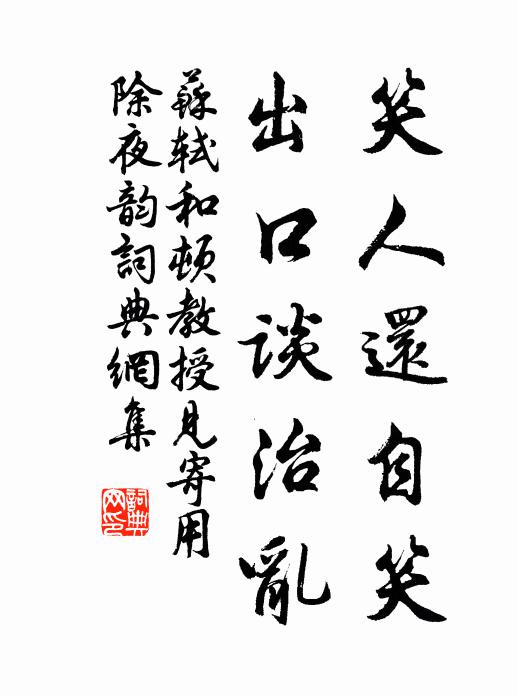 笑人還自笑
出口談治亂
蘇軾和頓教授見寄用
除夜韵詞典網集
詞典
网印